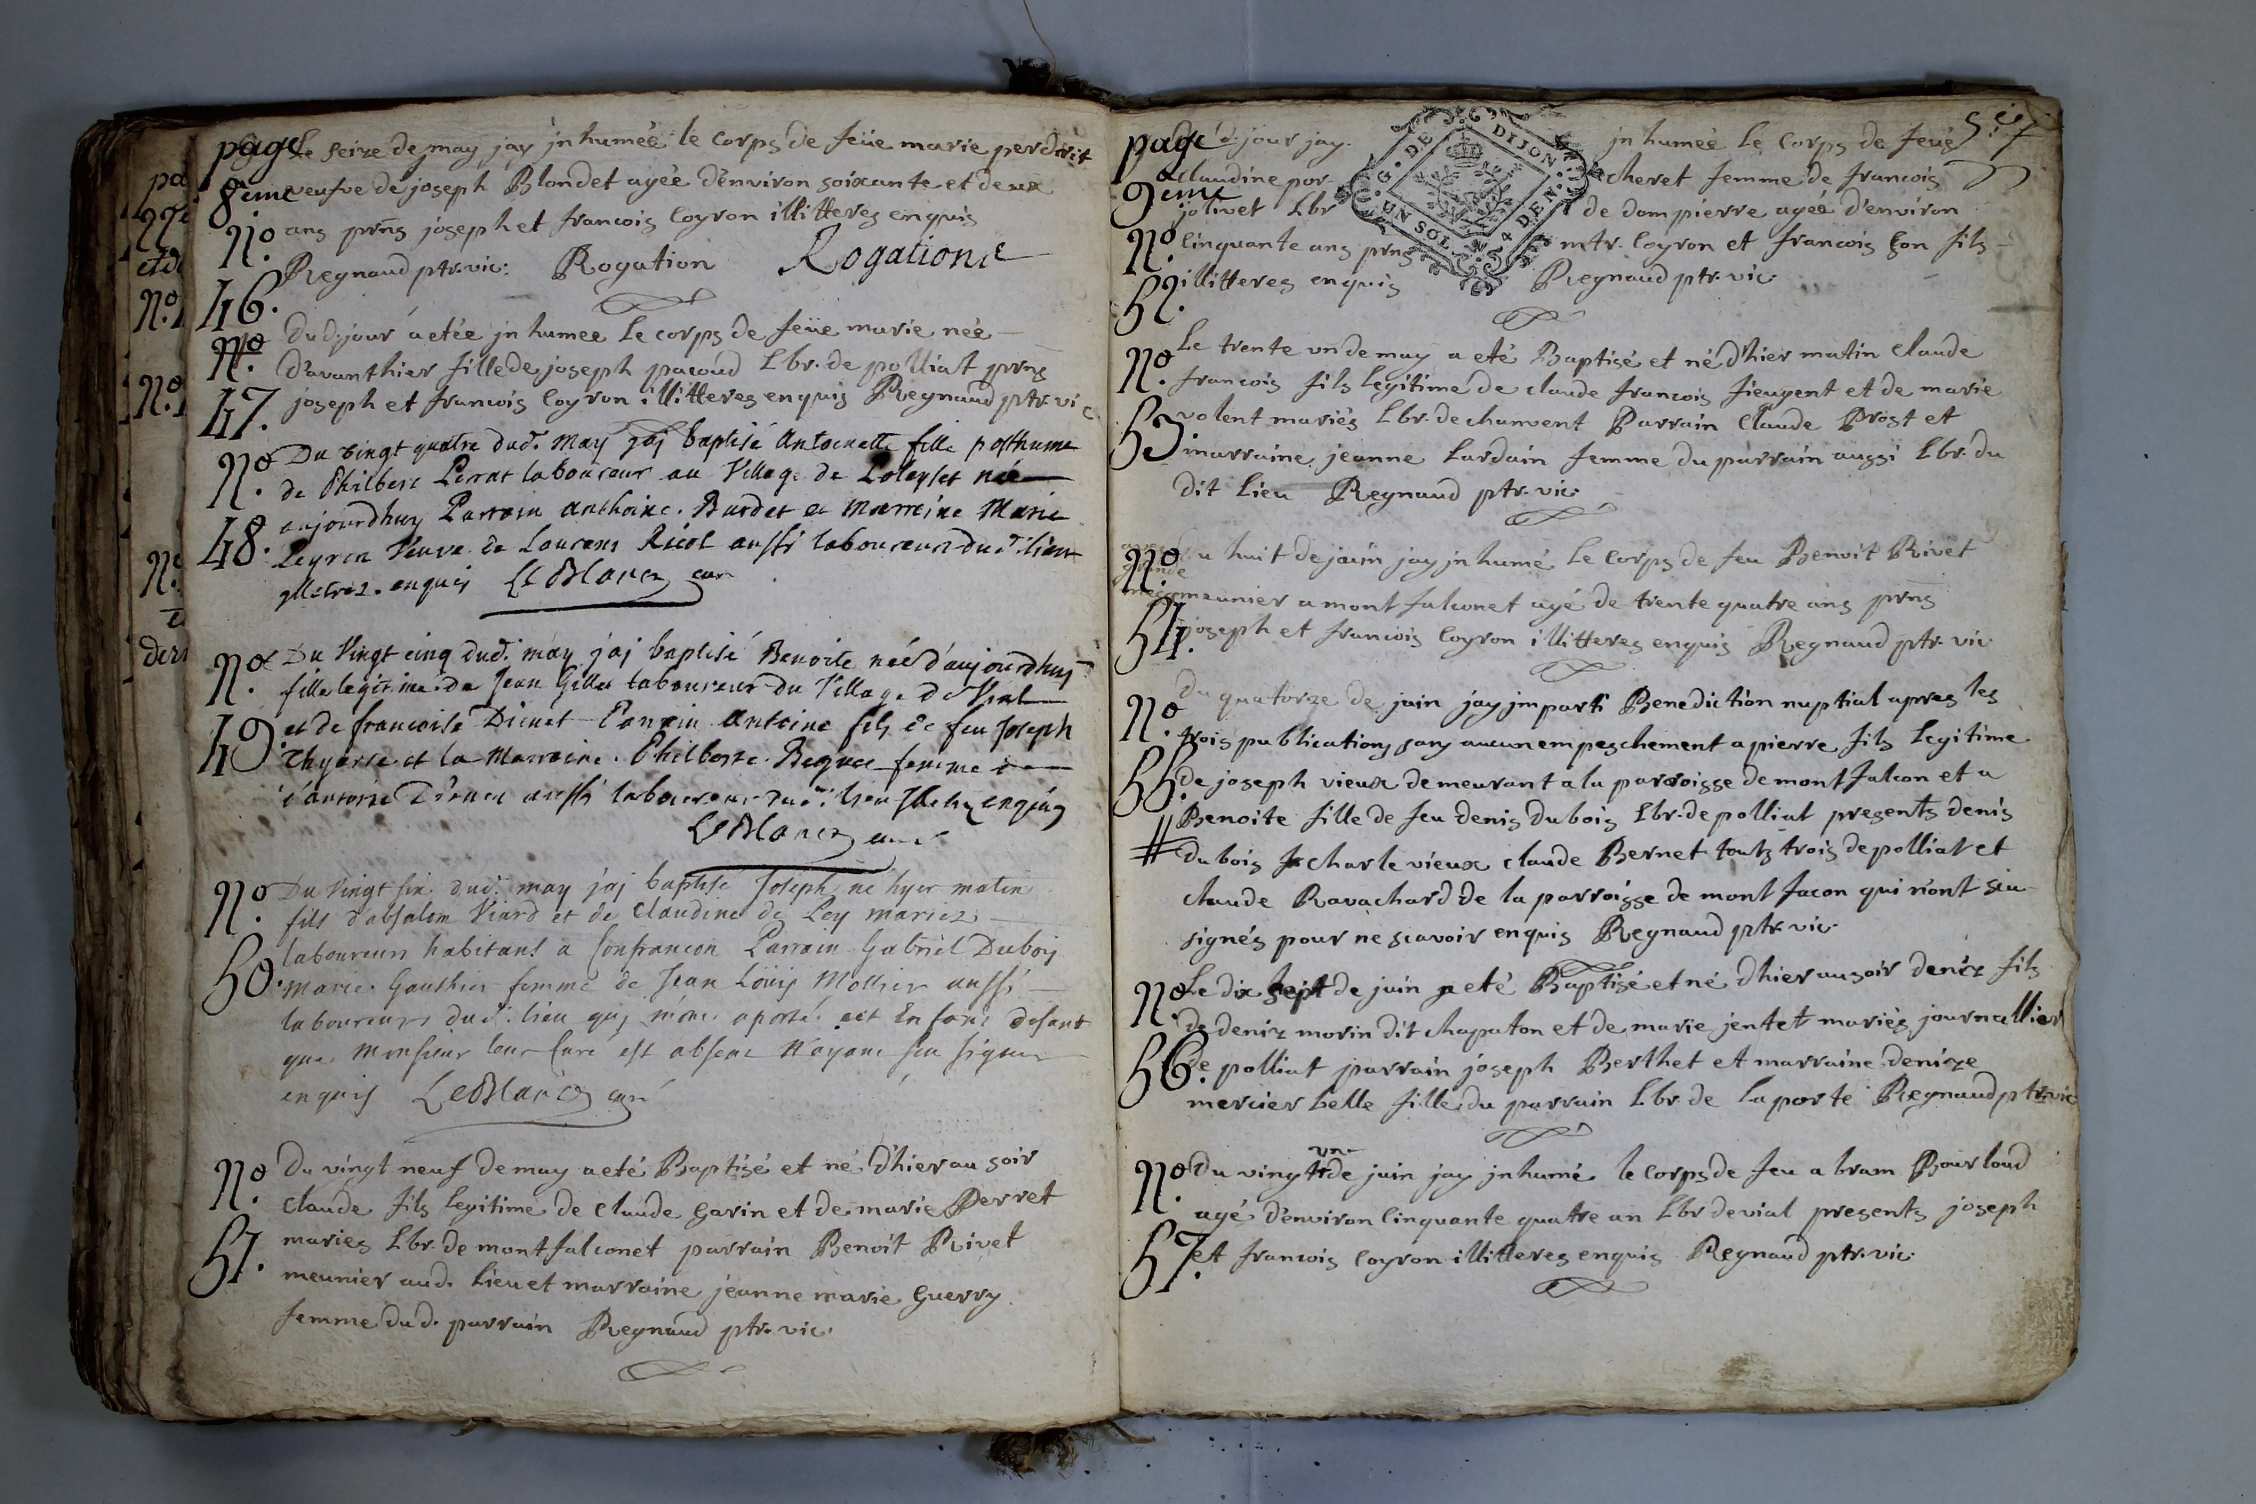 page
8eme
No
46.
Le seize de may jay jnhumée le corps de feüe marie perdrit
veufve de joseph Blondet agée denviron soixante et deux
ans prns joseph et francois Coyron illitteres enquis
Regnaud ptr. vic: Rogation Rogations
No
47.
Dud. jour a etée jnhumee le corps de feüe marie née
davanthier fille de joseph pacoud Lbr. de polliat prns
joseph et francois Coyron illitteres enquis Regnaud ptr. vic
No
48.
Du vingt quatre dud. may jaj baptisé Antoinette fille posthume
de Philbert Perrat laboureur au Village de née
aujourdhuy Parrain Anthoine Burdet et Marreine Marie
Peyron Veuve de Laurens Ricol aussi laboureur dud. lieu
enquis LeBlanc curé
No
49.
Du Vingt cinq dud. may jaj baptisé Benoite née d'aujourdhuy
fille legitime de Jean Gillet laboureur du Village de Vial
et de francoise Dienet Parrain Antoine fils de feu Joseph
et la Marraine Philberte femme
aussi laboureur dud. lieu enquis
LeBlanc curé
No
50.
Du Vingt six dud. may jaj baptise Joseph né hyer matin
fils d'absalom Viard et de Claudine de Ley mariez
laboureurs habitans a Confrancon Parrain Gabriel Dubois
Marie Gauthier femme de Jean Loüis Mollier aussi
laboureurs dud. lieu quj m'ont aporté cet Enfant disant
que Monsieur leur Curé est absent N'ayant sçu signer
enquis LeBlanc curé
No
51.
Du vingt neuf de may a eté Baptisé et né d'hier au soir
claude fils legitime de claude Garin et de marie Perret
mariés Lbr. de montfalconet parrain Benoit Rivet
meunier aud. lieu et marraine jeanne marie Guerry
femme dud. parrain Regnaud ptr. vic.
page
9eme
No
52.
d. jour jay jnhumée le corps de feüe
claudine por cheret femme de francois
jolivet Lbr de dompierre agée d'environ
Cinquante ans prns mtr. Coyron et francois son fils
illitteres enquis Regnaud ptr. vic.
G. DE DIJON UN SOL 4 DEN.
No
53
Le trente un de may a eté Baptisé et né d'hier matin claude
francois fils legitime de claude francois fieupent et de marie
volent mariés Lbr. de chanvent Parrain Claude Prost et
marraine jeanne Lardain femme du parrain aussi Lbr. du
dit lieu Regnaud ptr. vic.
No
54.
Du huit de jain jay jnhumé le corps de feu Benoit Rivet
meunier a montfalconet agé de trente quatre ans prns
joseph et francois Coyron illitteres enquis Regnaud ptr. vic
No
55.
#
Du quatorze de juin jay jmparti Benediction nuptial apres les
trois publications sans aucun empeschement a pierre fils legitime
de joseph vieux demeurant a la parroisse de montfalcon et a
Benoite fille de feu denis dubois Lbr. de polliat presents denis
dubois charle vieux claude Bernet touts trois de polliat et
claude Ravachard de la parroisse de mont facon qui n'ont sçu
signés pour ne scavoir enquis Regnaud ptr. vic.
No
56.
Le dix sept de juin a eté Baptisé et né d'hier au soir deniz fils
de deniz morin dit chapaton et de marie jentet mariés journallier
de polliat parrain joseph Berthet et marraine denize
mercier belle fille du parrain Lbr. de laporte Regnaud ptr. vic
No
57.
un
Du vingt de juin jay jnhumé le corps de feu abram Bourloud
agé d'environ Cinquante quatre an Lbr de vial presents joseph
et francois Coyron illitteres enquis Regnaud ptr. vic.